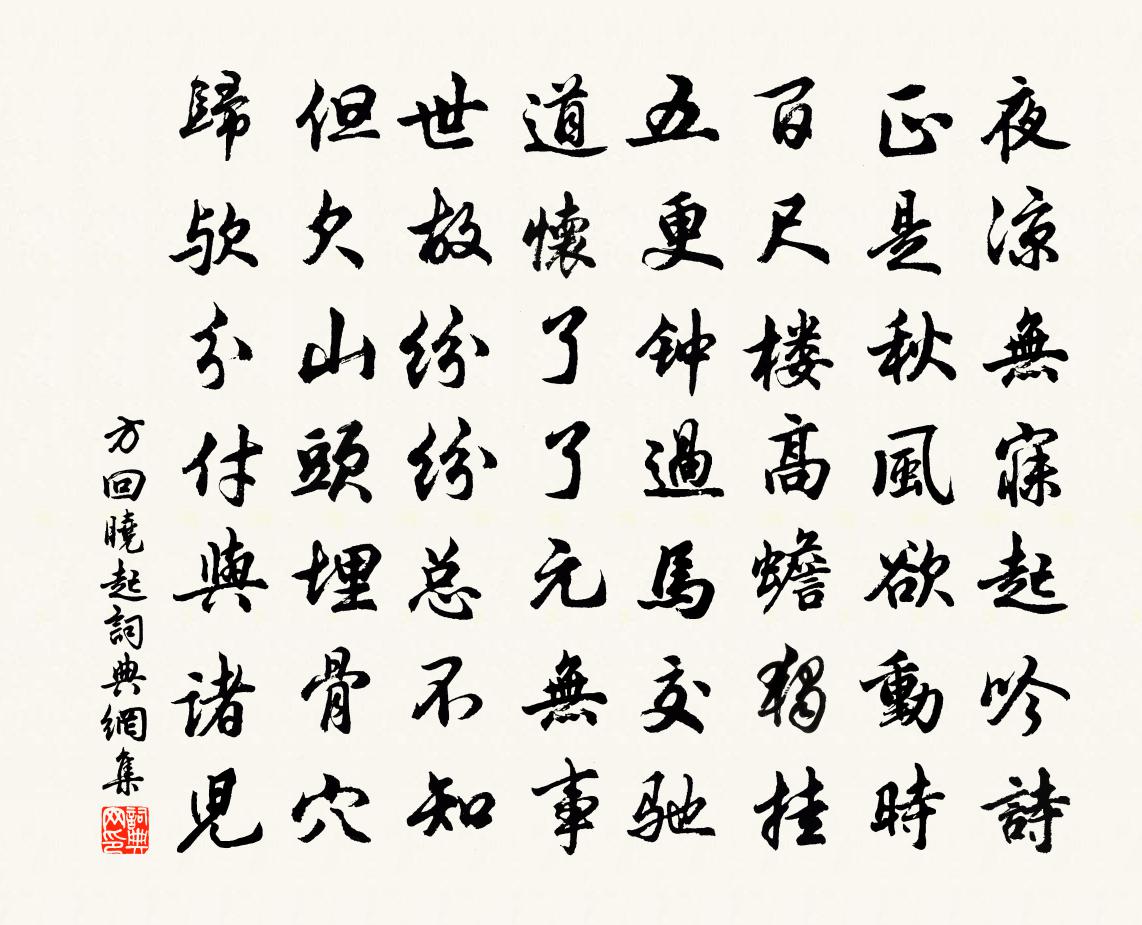 夜涼無寐起吟詩
正是秋風欲動時
百尺楼高蟾獨挂
五更钟過馬交驰
道懷了了元無事
世故紛紛总不知
但欠山頭埋骨穴
歸欤分付與诸児
方回曉起詞典網集
詞典网印